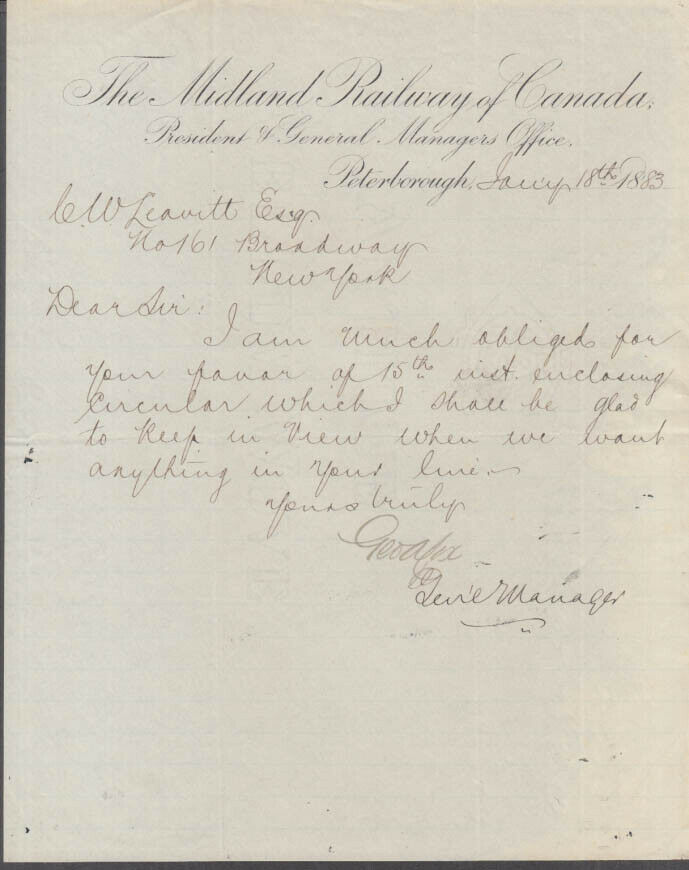 The Midland Railway of Canada,
President & General Managers Office,
Peterborough, Jan'y 18th 1883
C.W. Leavitt Esq
No 161 Broadway
New York
Dear Sir:
I am much obliged for
your favor of 15th inst. enclosing
Circular which I shall be glad
to keep in view when we want
anything in your line.
Yours truly
Geo A Cox
Gen'l Manager